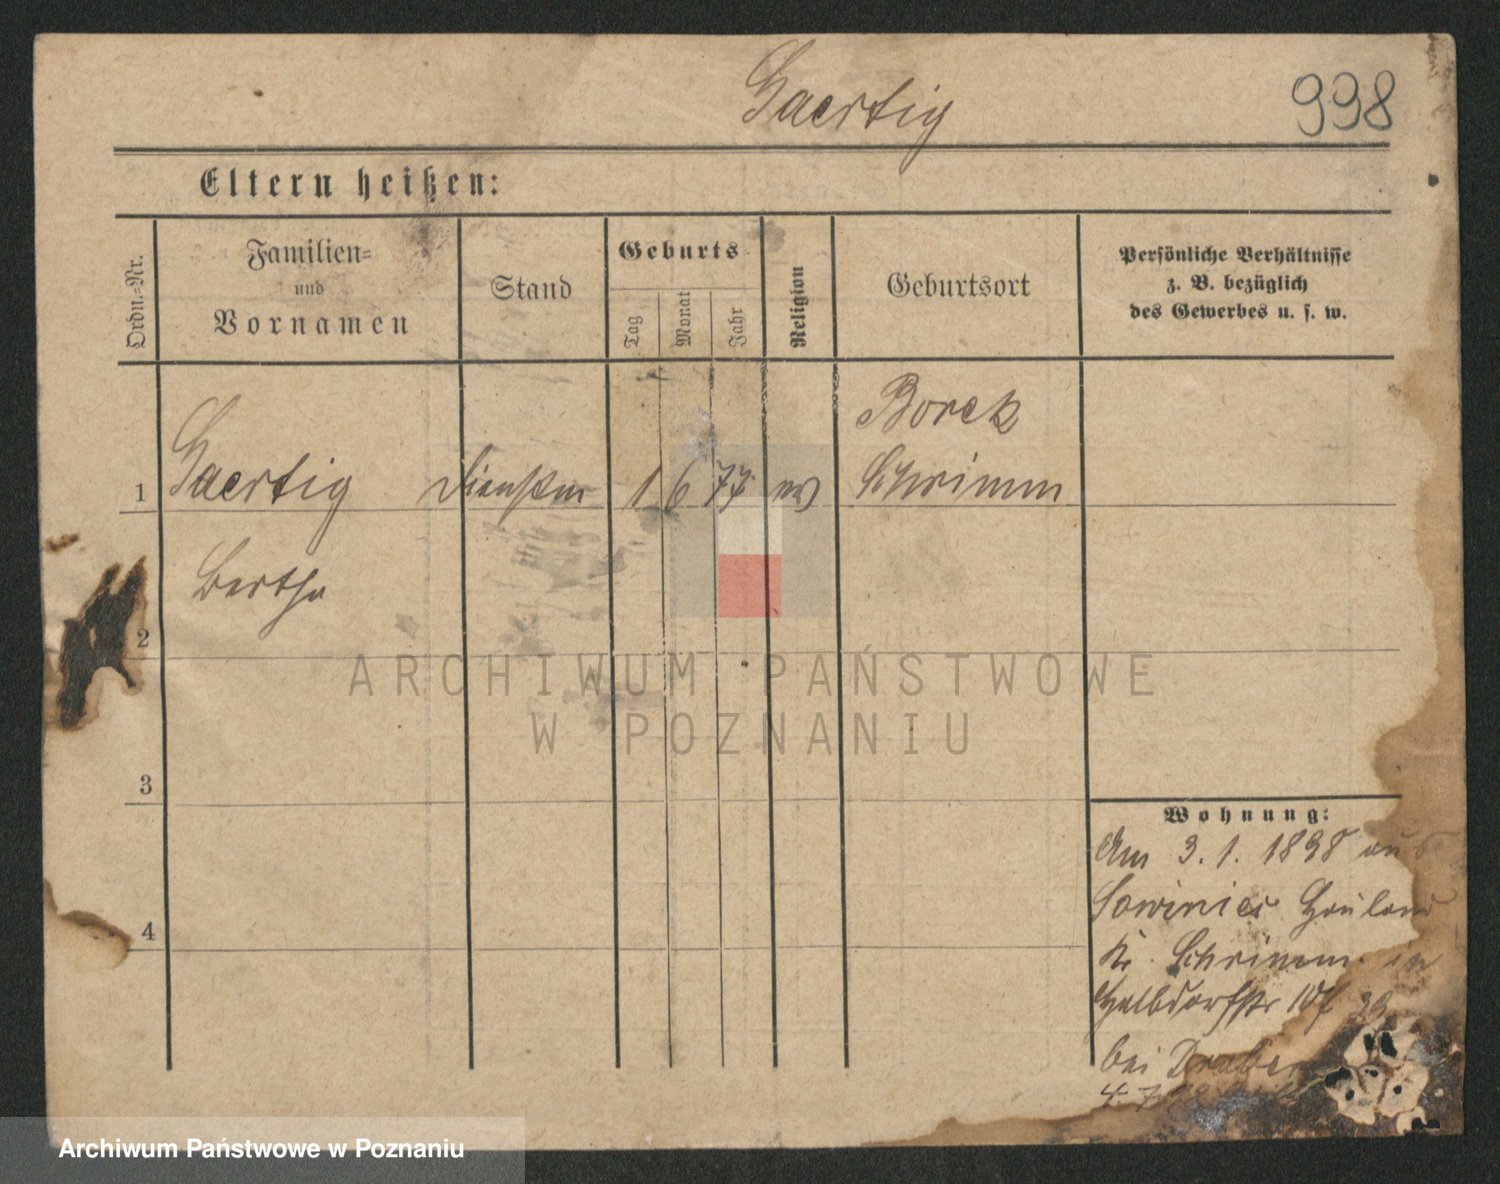 Gaertig
998
Eltern heißen:
Ordn.-Nr.
Familien-
und
Vornamen
Stand
Geburts
Tag
Monat
Jahr
Religion
Geburtsort
Persönliche Verhältnisse
z. B. bezüglich
des Gewerbes u. s. w.
Borek
1 Gaertig Dienstm 1 6 77 ev Schrimm
Bertha
2
3
4
ARCHIWUM PAŃSTWOWE
W POZNANIU
Wohnung:
Am 3. 1. 1898 aus
Sowiniec Hauland
Kr. Schrimm in
Halbdorfstr 10
bei Draber
4. 7. 98
Archiwum Państwowe w Poznaniu